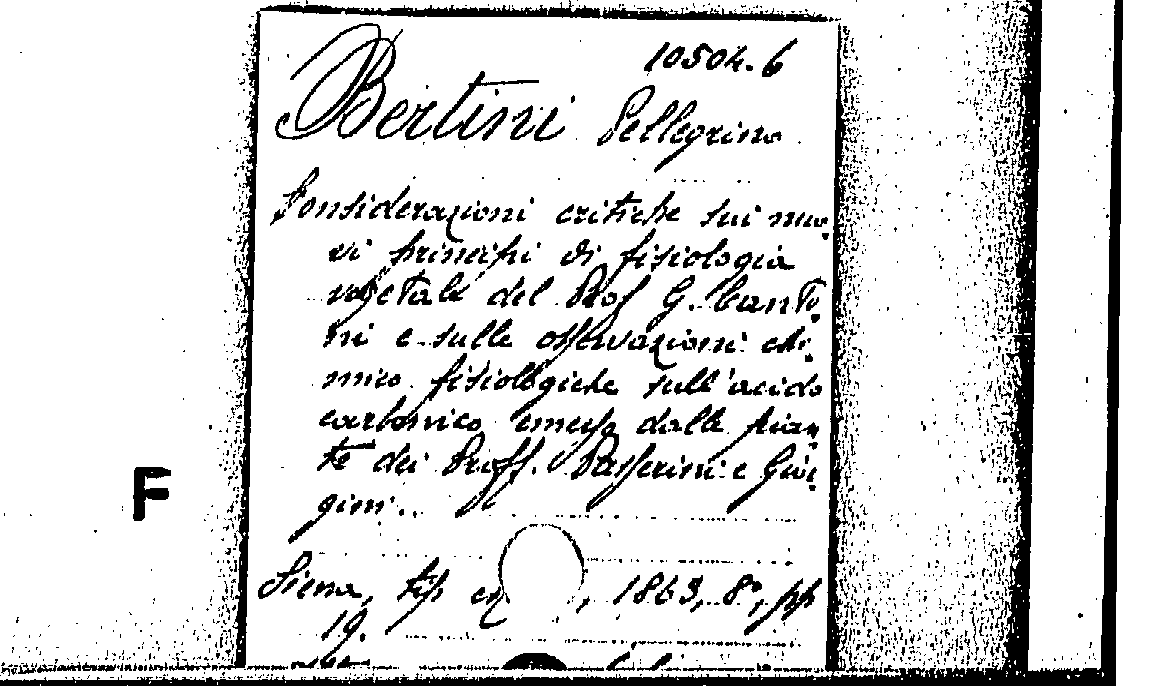 10504.6
Bertini Pellegrino
Considerazioni critiche sui nuo-
vi principi di fisiologia
vegetale del Prof G. Canto-
ni e sulle osservazioni chi-
mico fisiologiche sull'acido
carbonico emesso dalle pian-
te dei Proff. Passerini e Gior-
gini.
F
Siena, tip , 1863, 8°, pp
19.